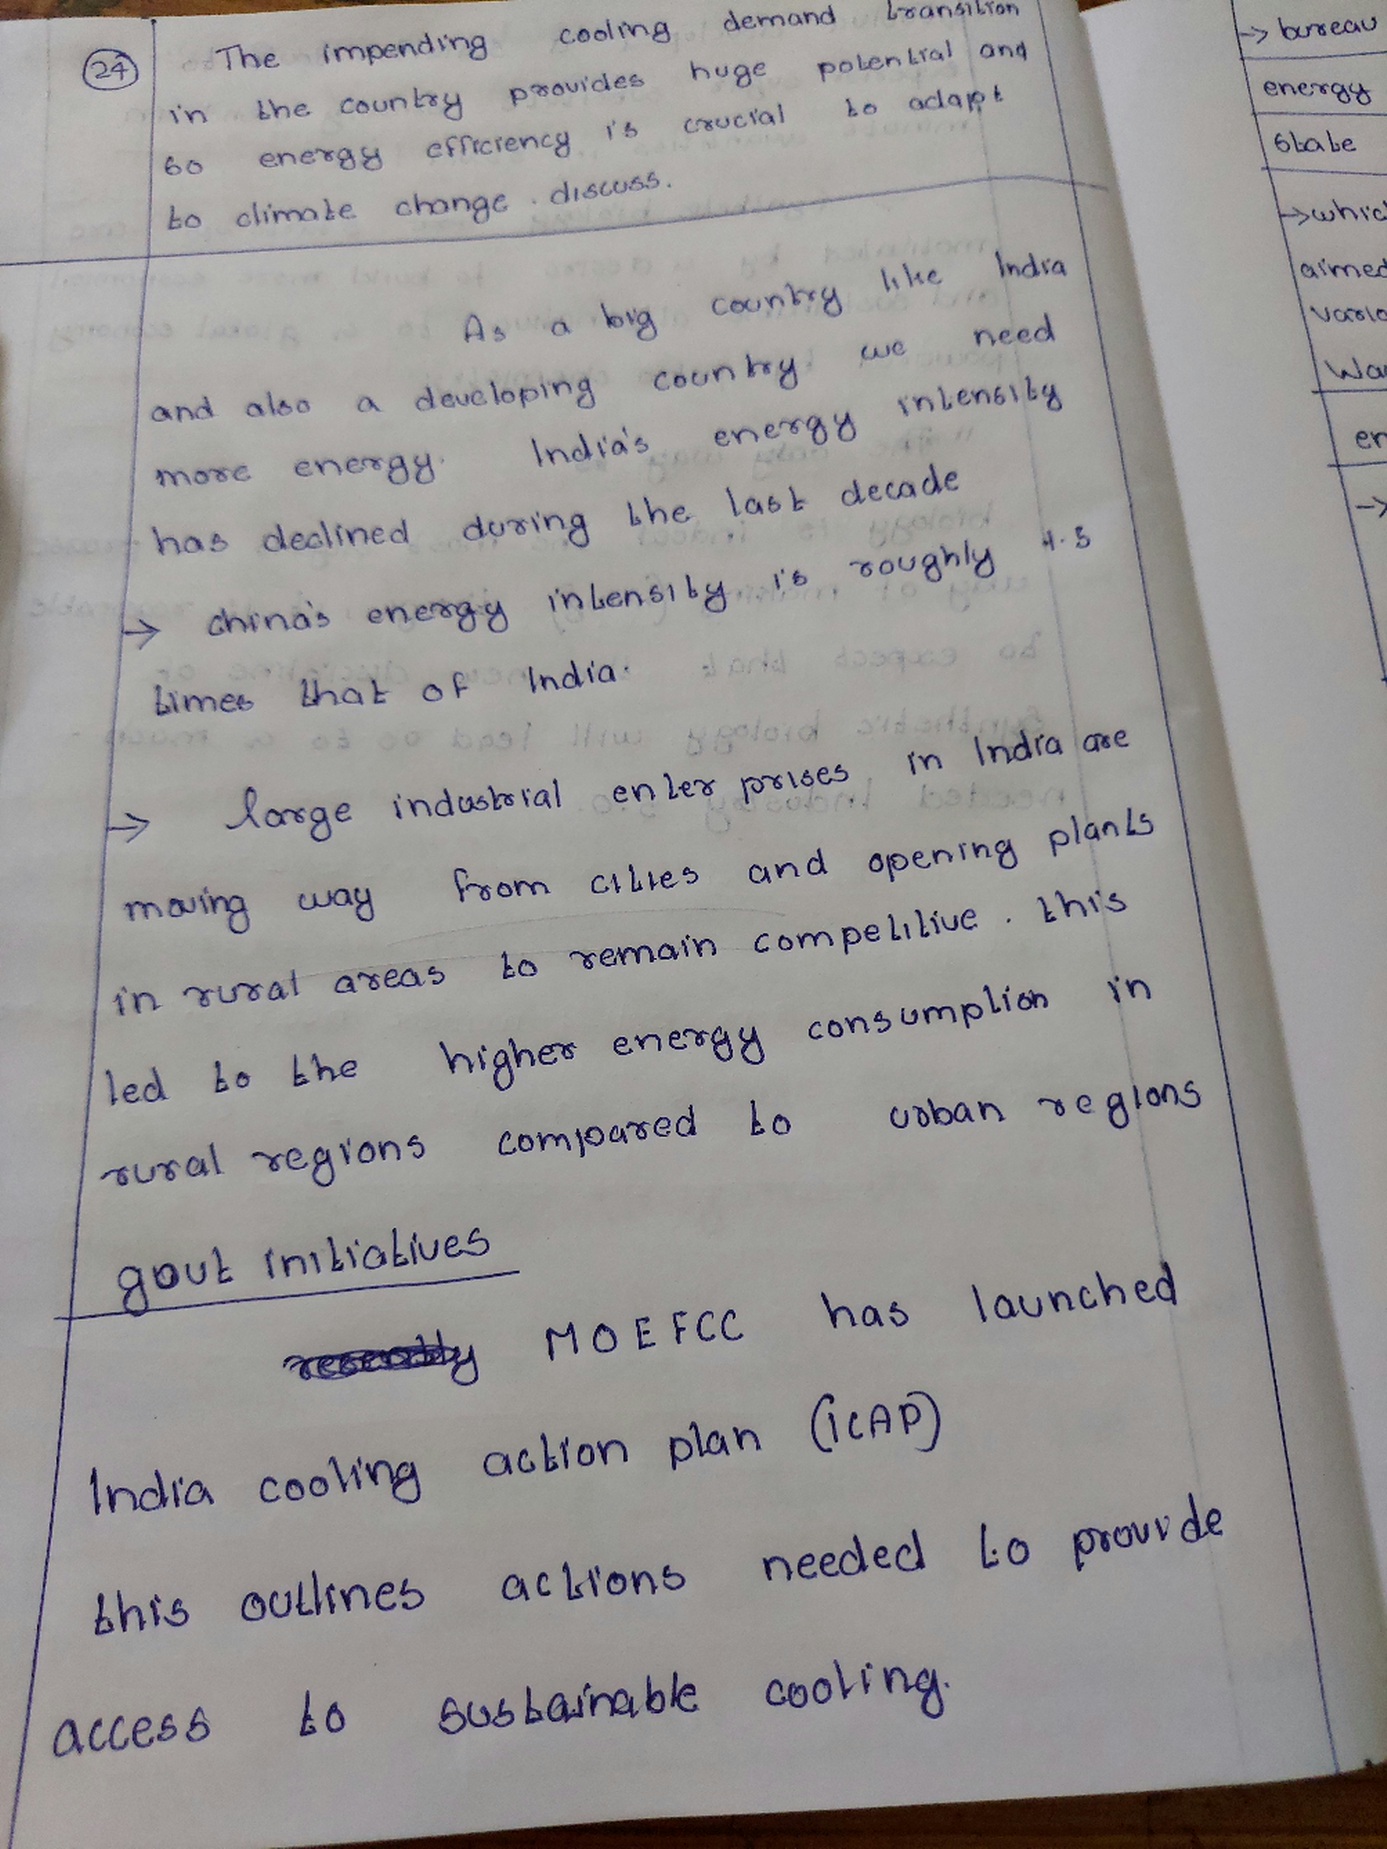 24
The impending cooling demand transition
in the country provides huge potential and
so energy efficiency is crucial to adapt
to climate change. discuss.
As a big country like India
and also a developing country we need
more energy. India's energy intensity
has declined during the last decade
→ china's energy intensity is roughly 1.5
times that of India.
→ large industrial enterprises in India are
moving way from cities and opening plants
in rural areas to remain competitive. this
led to the higher energy consumption in
rural regions compared to urban regions
govt initiatives
MOEFCC has launched
India cooling action plan (ICAP)
this outlines actions needed to provide
access to sustainable cooling.
→ bureau
energy
state
→ whic
aimed
vario
wa
en
→